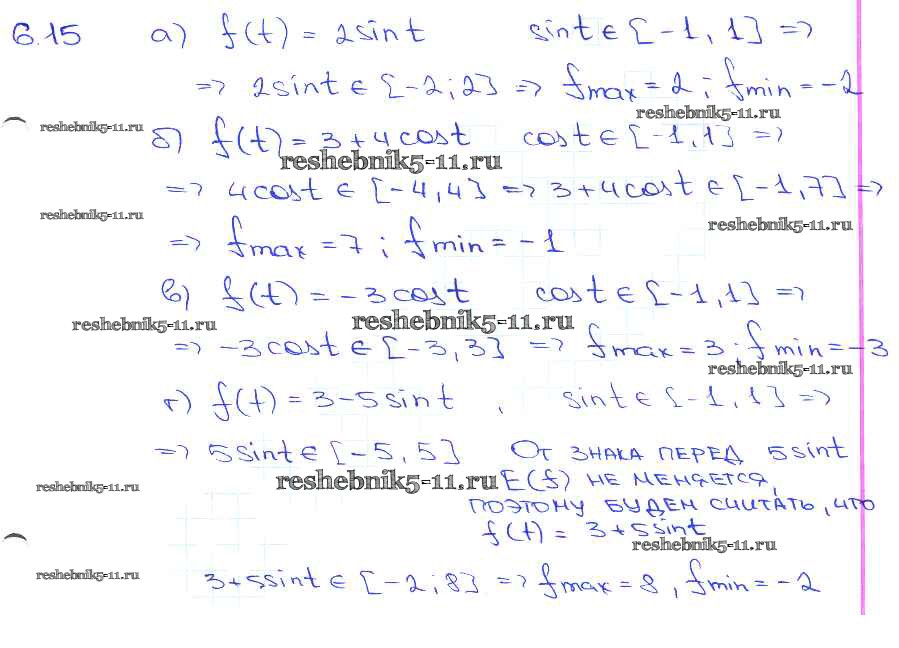 6.15 а) f(t) = 2sint sint ∈ [-1, 1] =>
=> 2sint ∈ [-2; 2] => fmax = 2; fmin = -2
reshebnik5-11.ru
reshebnik5-11.ru
б) f(t) = 3 + 4cost cost ∈ [-1, 1] =>
reshebnik5-11.ru
=> 4cost ∈ [-4, 4] => 3 + 4cost ∈ [-1, 7] =>
reshebnik5-11.ru
reshebnik5-11.ru
=> fmax = 7; fmin = -1
в) f(t) = -3cost cost ∈ [-1, 1] =>
reshebnik5-11.ru
reshebnik5-11.ru
=> -3cost ∈ [-3, 3] => fmax = 3; fmin = -3
reshebnik5-11.ru
г) f(t) = 3 - 5sint , sint ∈ [-1, 1] =>
=> 5sint ∈ [-5, 5] ОТ ЗНАКА ПЕРЕД 5sint
reshebnik5-11.ru
reshebnik5-11.ru
E(f) НЕ МЕНЯЕТСЯ,
ПОЭТОМУ БУДЕМ СЧИТАТЬ, ЧТО
f(t) = 3 + 5sint
reshebnik5-11.ru
reshebnik5-11.ru
3 + 5sint ∈ [-2; 8] => fmax = 8, fmin = -2